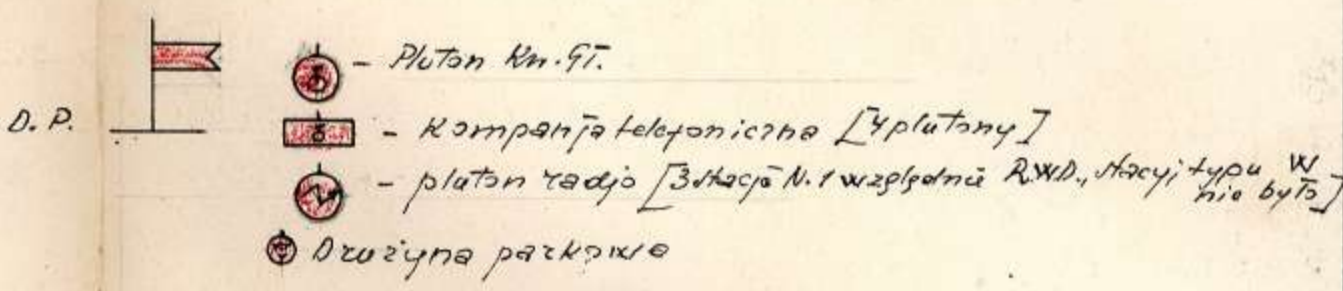 – Pluton Kn. GT.
D. P.
– Kompanja telefoniczna [4 plutony]
– pluton radjo [3 stacje N.1 względnie R.W.D., stacyj typu W nie było]
Drużyna parkowa